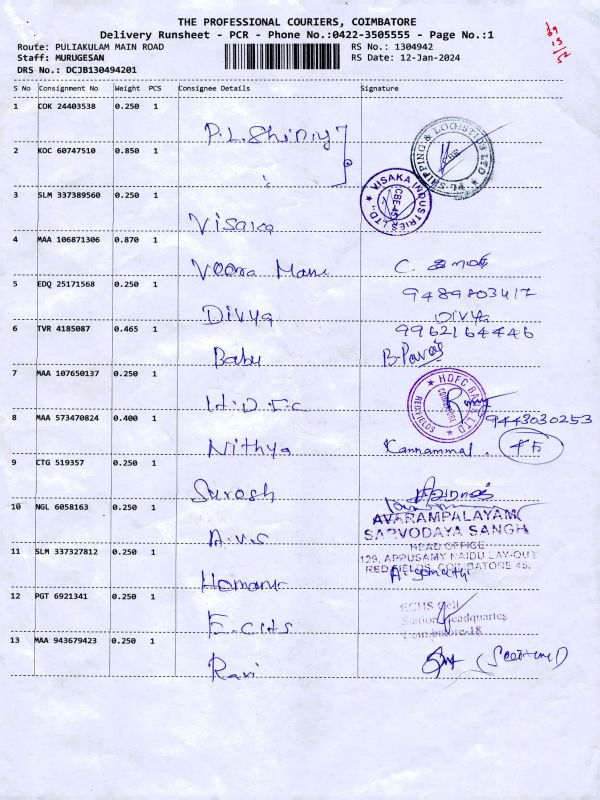 THE PROFESSIONAL COURIERS, COIMBATORE
Delivery Runsheet - PCR - Phone No.:0422-3505555 - Page No.:1
Route: PULIAKULAM MAIN ROAD
RS No.: 1304942
Staff: MURUGESAN
RS Date: 12-Jan-2024
DRS No.: DCJB130494201
S No Consignment No Weight PCS Consignee Details Signature
1 COK 24403538 0.250 1
2 KOC 60747510 0.850 1
SHIPPING & LOGISTICS LTD
3 SLM 337389560 0.250 1
Visaka
VISAKA INDUSTRIES LTD.,
CBE-45
4 MAA 106871306 0.870 1
5 EDQ 25171568 0.250 1
Divya
9489803417
Divya
6 TVR 4185087 0.465 1
Babu
9962164446
7 MAA 107650137 0.250 1
H.D.F.C
HDFC BANK LTD
8 MAA 573470824 0.400 1
Nithya
9443030253
Kannammal.
9 CTG 519357 0.250 1
Suresh
10 NGL 6058163 0.250 1
A.V.S
AVARAMPALAYAM
SARVODAYA SANGH
HEAD OFFICE
129, APPUSAMY NAIDU LAY-OUT
RED FIELDS, COIMBATORE 45.
11 SLM 337327812 0.250 1
12 PGT 6921341 0.250 1
E.C.H.S
ECHS Cell
Station Headquarters
Coimbatore-18
13 MAA 943679423 0.250 1
Ravi